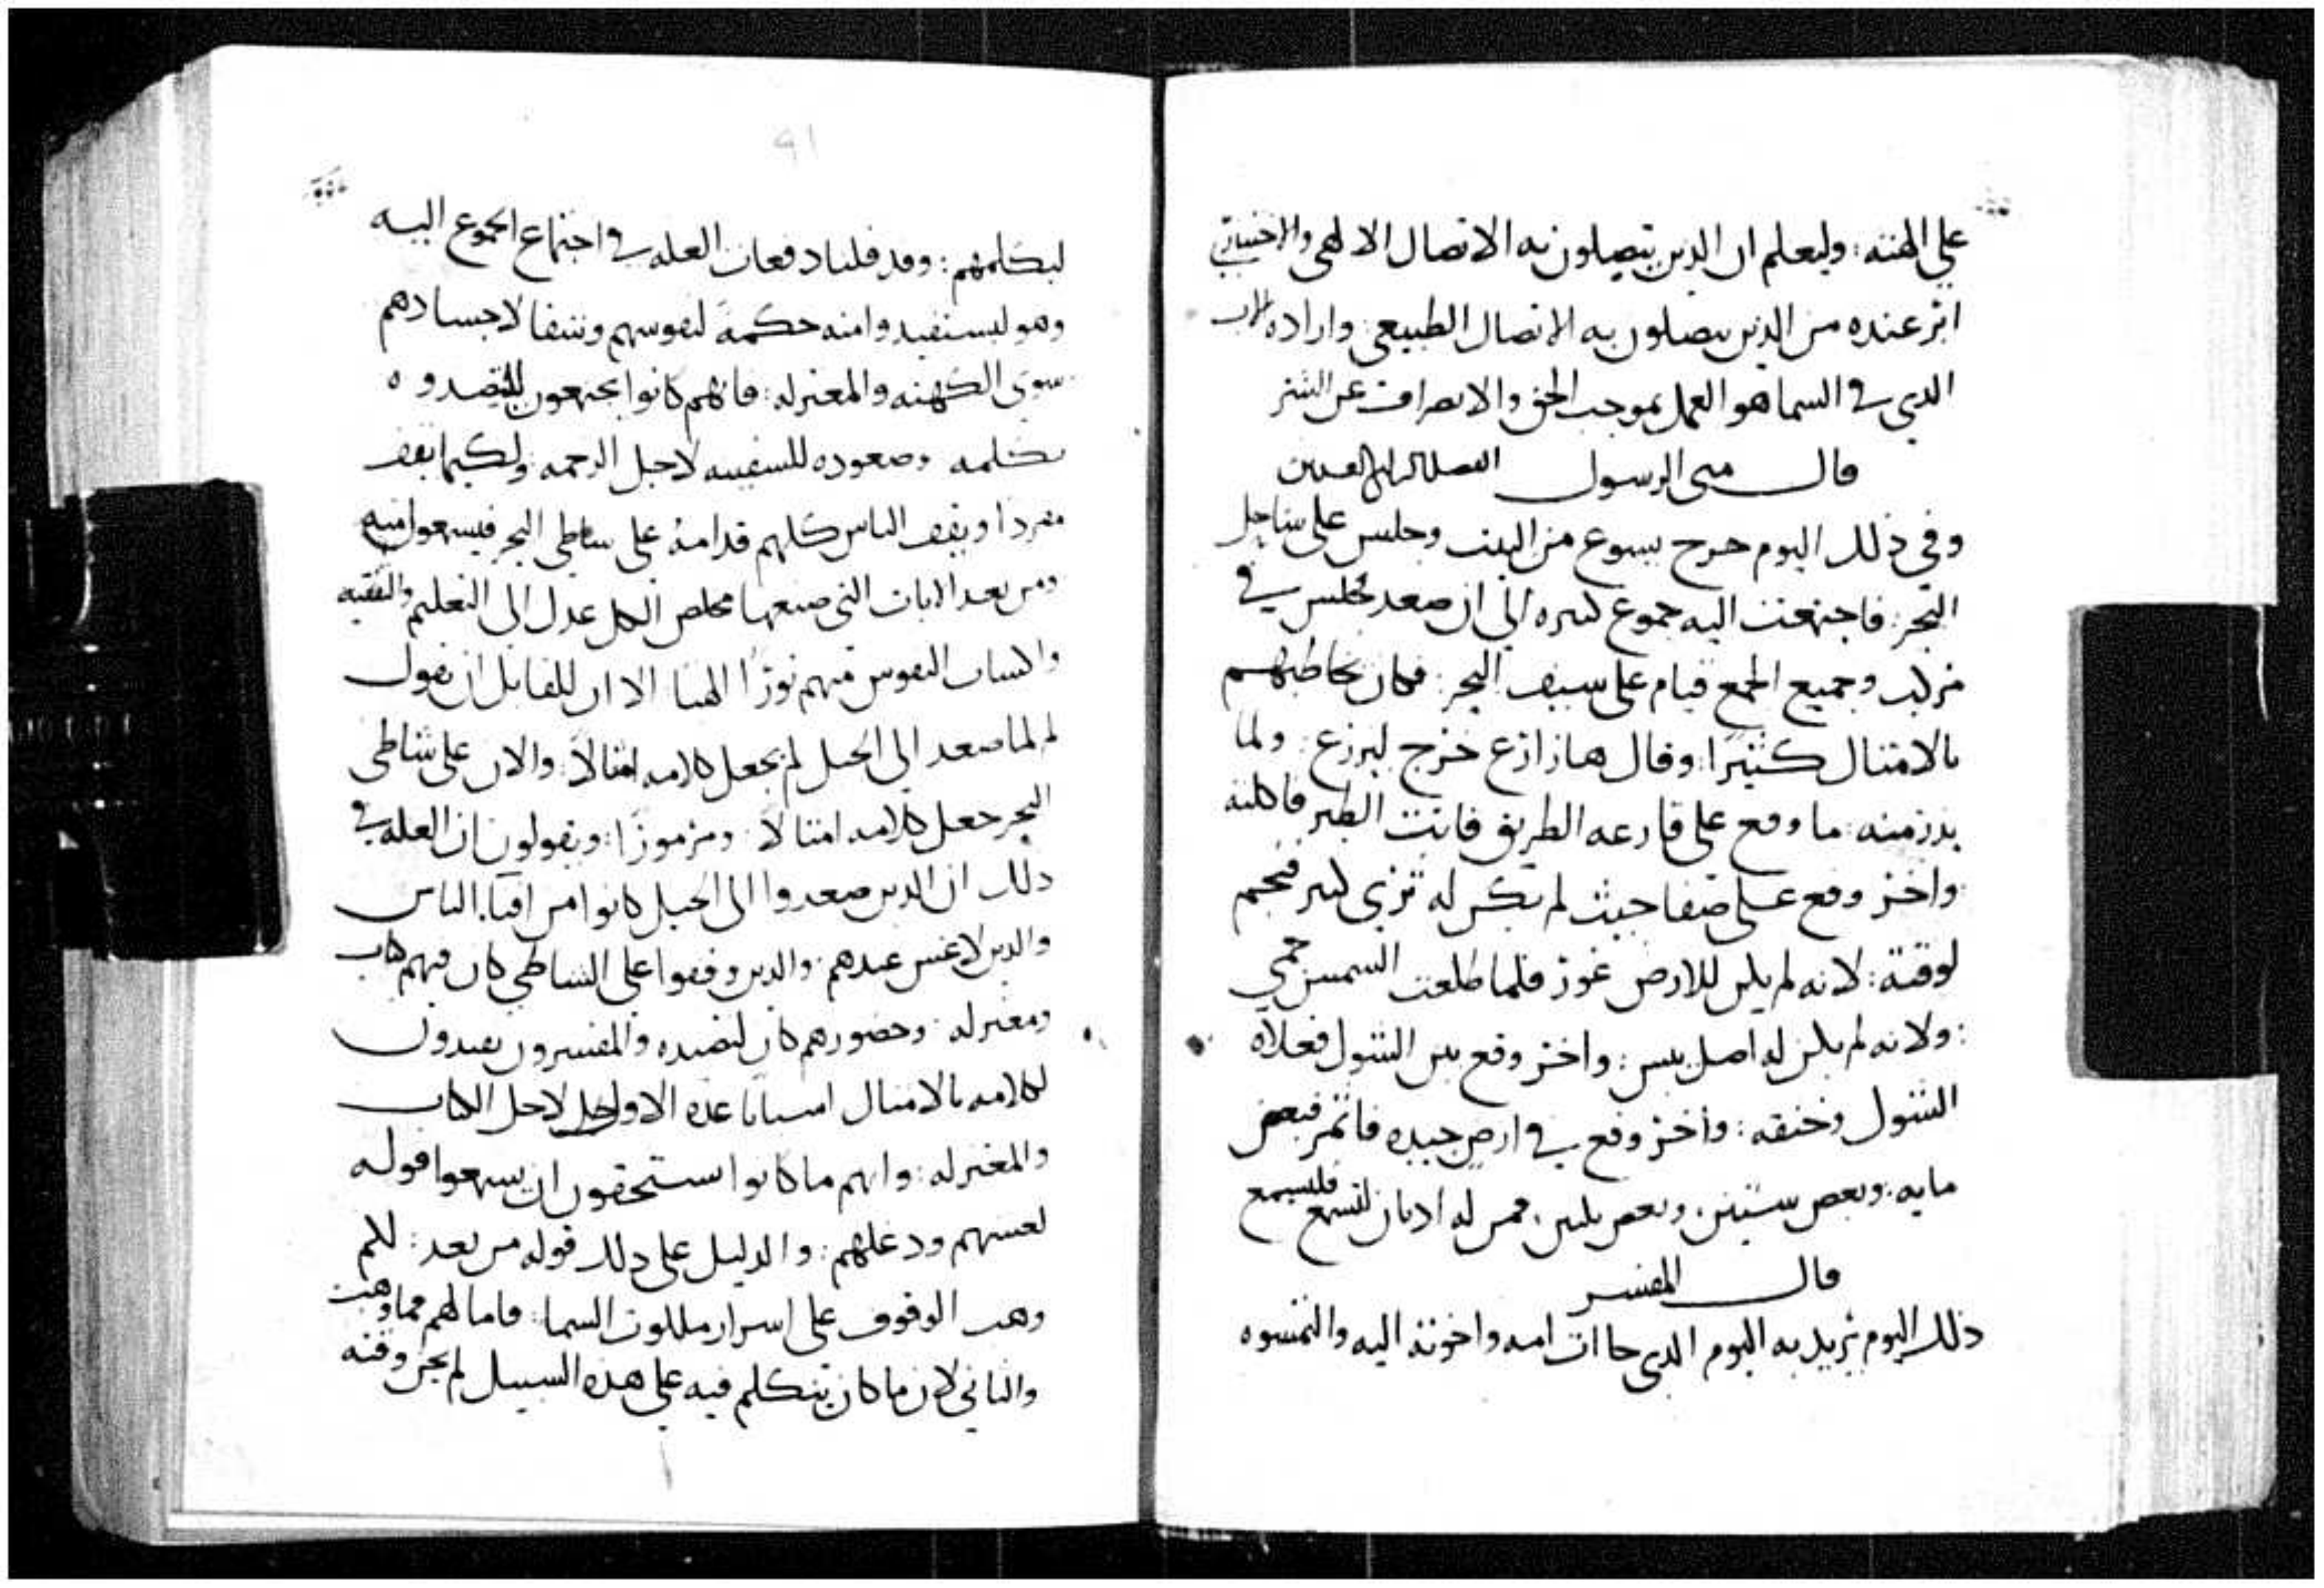 على المنه: وليعلم ان الدين يتصلون به الاتصال الالهى والاختياري
اثر عنده من الذين يتصلون به الاتصال الطبيعى: وارادة الاب
الدى فى السما هو العمل بموجب الحق والانصراف عن الشر
قال متى الرسول
وفى ذلك اليوم خرج يسوع من البيت وجلس على ساحل
البحر: فاجتمعت اليه جموع كثيره الى ان صعد فجلس فى
مركب وجميع الجمع قيام على سيف البحر: فكان يخاطبهم
بالامثال كثيرًا: وقال ها زارع خرج ليزرع: ولما
بدر منه: ما وقع على قارعه الطريق فاتت الطير فاكلته
واخر وقع على صفا حيث لم يكن له ثرى كثير فنجم
لوقته: لانه لم يكن للارض غور فلما طلعت الشمس حمى
: ولانه لم يكن له اصل يبس: واخر وقع بين الشوك فعلاه
الشوك وخنقه: واخر وقع فى ارض جيده فاثمر فبعض
مايه: وبعض ستين: وبعض ثلثين: فمن له اذنان لتسمع فليسمع
قال المفسر
ذلك اليوم يريد به اليوم الدى جاات امه واخوته اليه والتمسوه
91
ليكلمهم: وقد قلنا دفعات العله فى اجتماع الجموع اليه
وهو ليستفيدوا منه حكمة لنفوسهم وشفا لاجسادهم
سوى الكهنه والمعتزله: فانهم كانوا يجتمعون ليتصيدوه
بكلمه وصعوده للسفينه لاجل الزحمه ولكيما يقف
مفردا ويقف الناس كلهم قدامه على شاطى البحر فيسمعوا منه
ومن بعد الايات التى صنعها مخلص الكل عدل الى التعليم والتفقيه
واكساب النفوس منهم نورًا الهيا الا ان للقايل ان يقول
لم لما صعد الى الجبل لم يجعل كلامه امثالاً: والان على شاطى
البحر جعل كلامه امثالا ومرموزًا: ويقولون ان العله فى
ذلك ان الدين صعدوا الى الجبل كانوا من افنا الناس
والدين لا غش عندهم: والدين وقفوا على الشاطى كان فيهم كتاب
ومعتزله: وحضورهم كان لتصيده والمفسرون يعيدون
لكلامه بالامثال اسبابا عده الاول لاجل الكتاب
والمعتزله: وانهم ما كانوا يستحقون ان يسمعوا قوله
لغشهم ودغلهم: والدليل على ذلك قوله من بعد: لكم
وهب الوقوف على اسرار ملكوت السما: فاما لهم فما وهبت
والثانى لان ما كان يتكلم فيه على هده السبيل لم يجز وقته